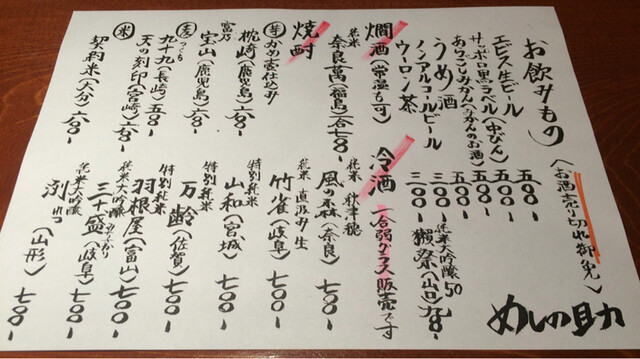 お飲みもの（お酒売り切れ御免）
エビス生ビール 五〇〇-
サッポロ黒ラベル（中びん）五〇〇-
あらごしみかん（みかんのお酒）五〇〇-
うめ酒 五〇〇-
ノンアルコールビール 三〇〇-
ウーロン茶 二〇〇-
燗酒（常温も可）
純米 奈良萬（福島）一合 七〇〇-
焼酎
芋 かめ壺仕込み
枕崎（鹿児島）六〇〇-
富乃宝山（鹿児島）六〇〇-
麦 つくも
九十九（長崎）五〇〇-
天の刻印（宮崎）六〇〇-
米 契約米（大分）六〇〇-
純米大吟醸50
獺祭（山口）九〇〇-
冷酒 一合弱グラス販売です
純米 秋津穂
風の森（奈良）七〇〇-
純米 直汲み生
竹雀（岐阜）七〇〇-
特別純米
山和（宮城）七〇〇-
特別純米
万齢（佐賀）七〇〇-
特別純米
羽根屋（富山）七〇〇-
純米大吟醸
三十六盛（岐阜）七〇〇-
純米大吟醸
洌（山形）七〇〇-
めしの助